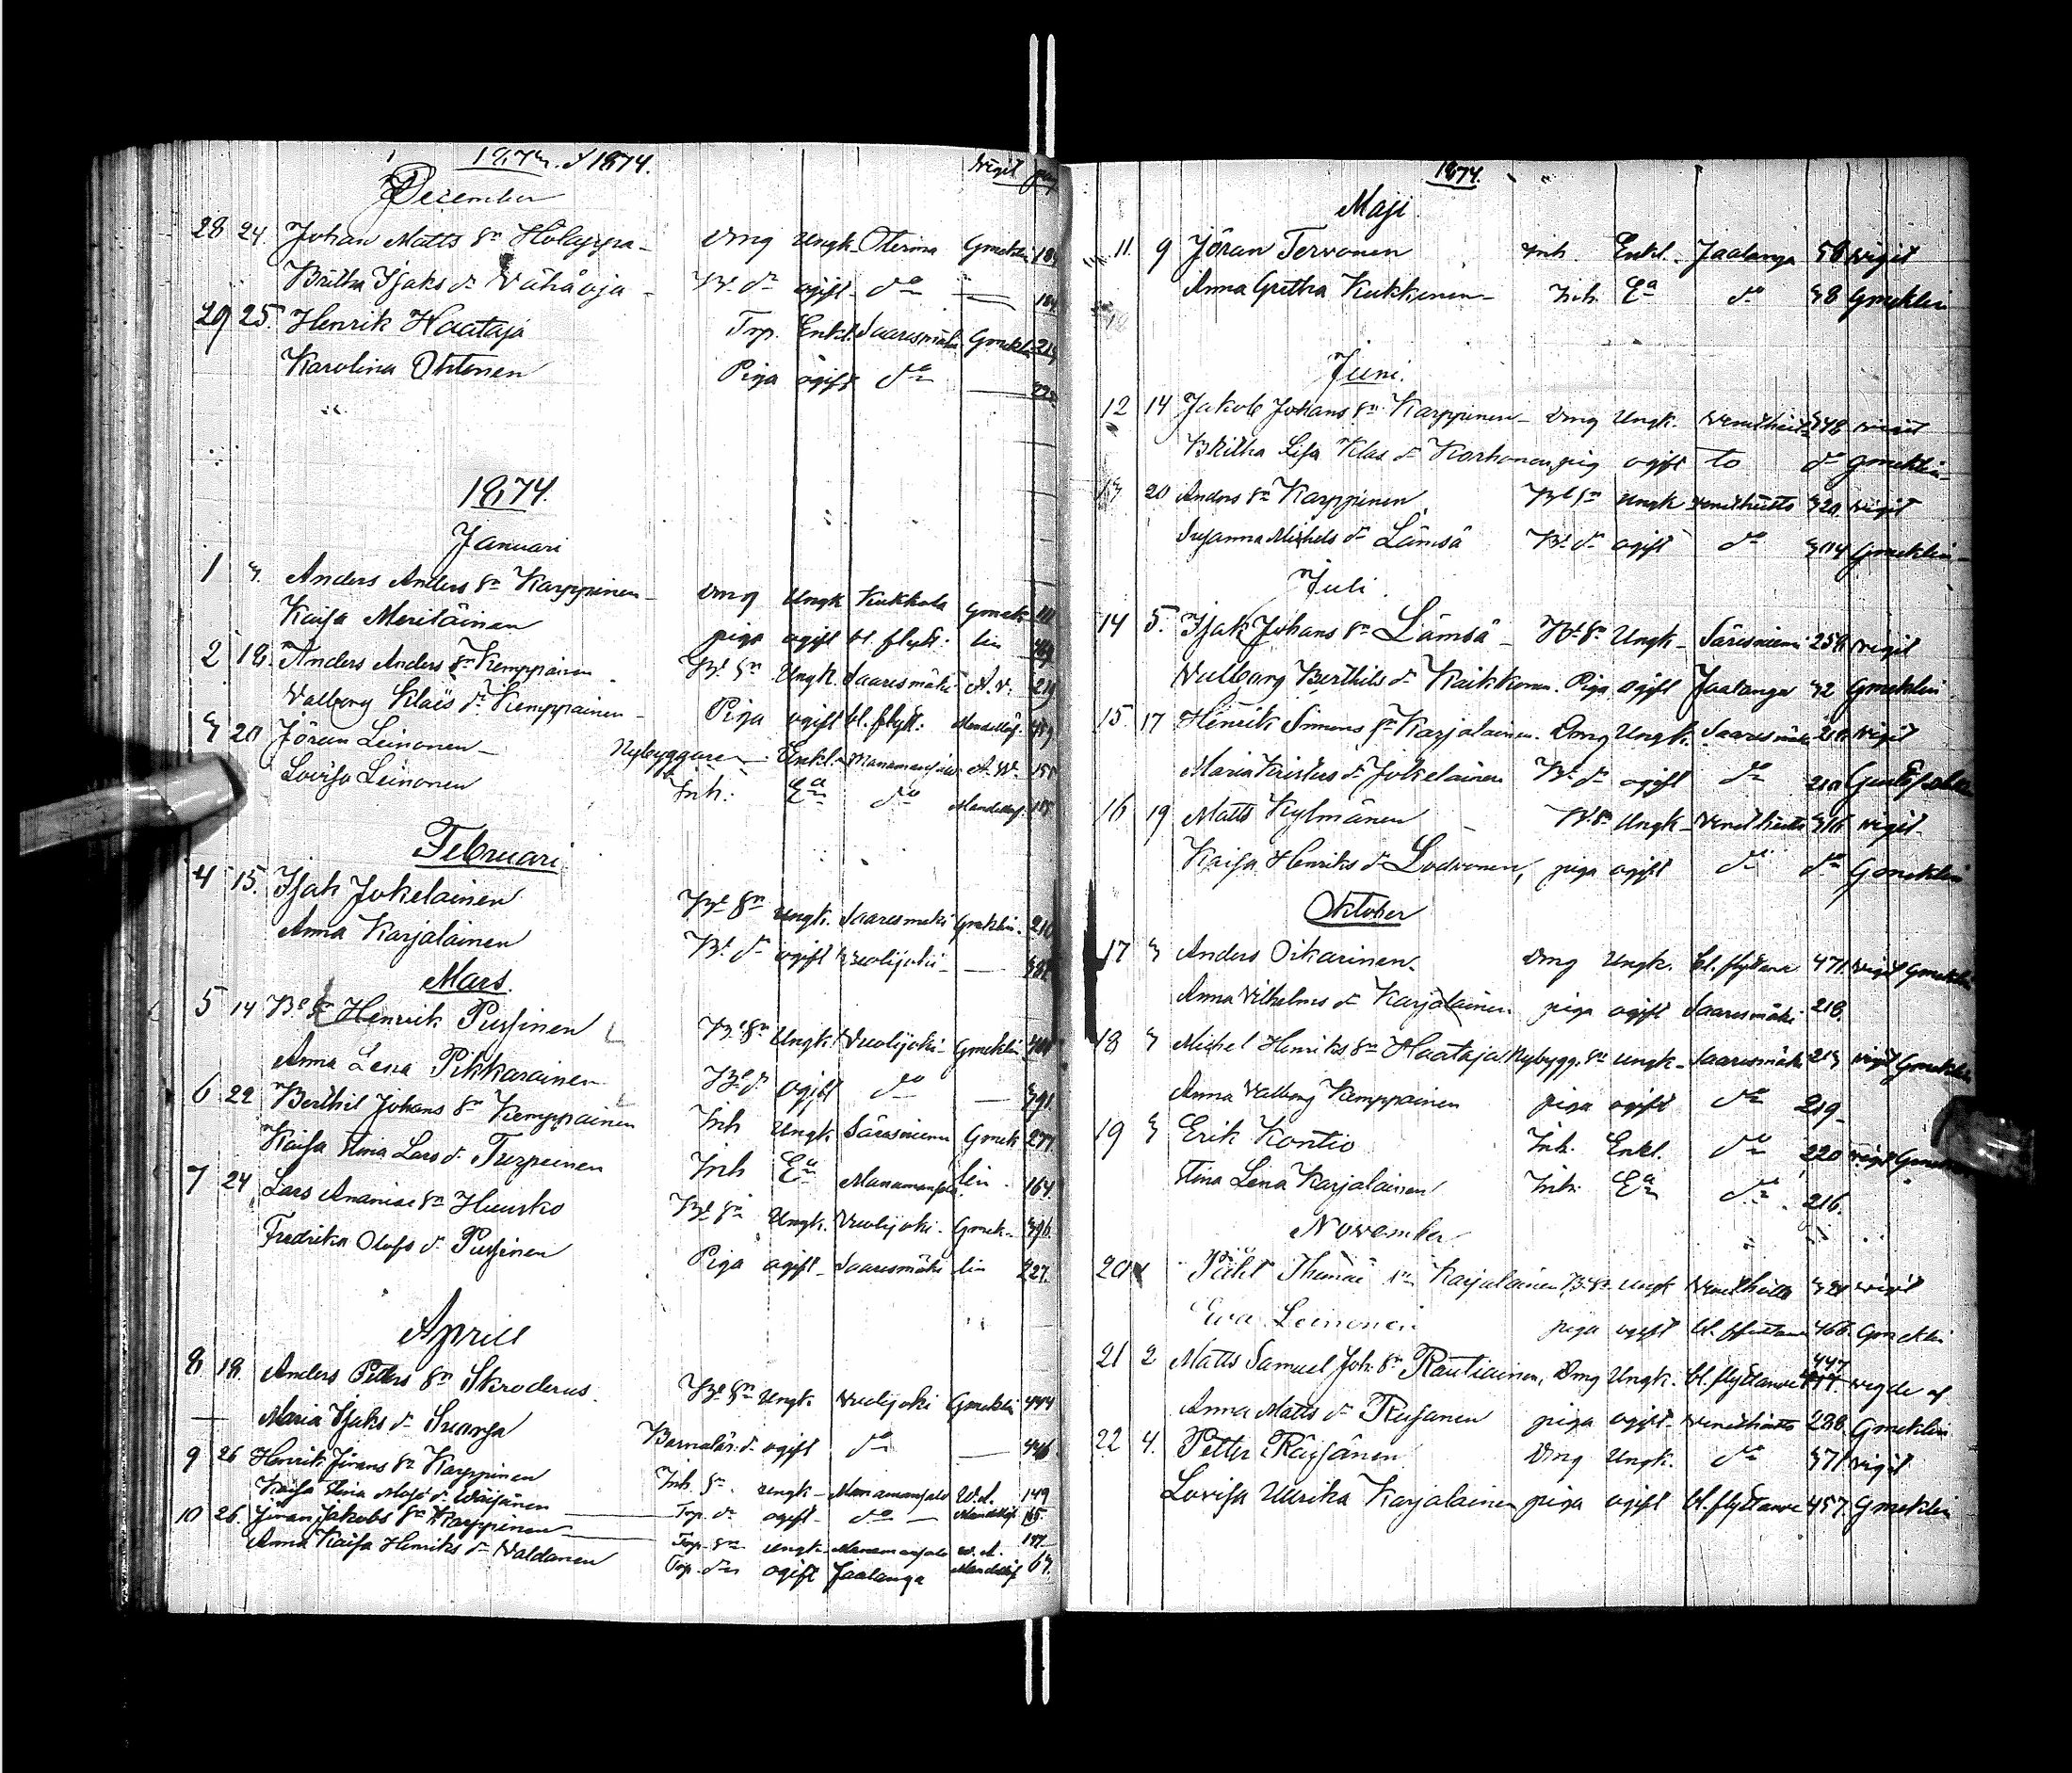 1873 & 1874.
Vigit pag
December
28 24. Johan Matts sn Holappa - Dmg Ungk. Oterma Gmeklin 184
Britha Isaks dr Vähäoja - Bd. dr ogift do — 184
29 25. Henrik Haataja Torp. Enkl. Saaresmäki Gmeklin 213
Karolina Ohtonen Piga ogift do —
1874.
Januari
1 3. Anders Anders sn Karppinen - Dmg Ungk Kukkola Gmek-
Kaisa Meriläinen piga ogift bl. flytt: lin
2 18. Anders Anders sn Kemppainen Bd. sn Ungk. Saaresmäki A. W. 219
Valborg Klaës dr Kemppainen - Piga ogift bl. flytt: Mandellöf. 459
3 20 Jöran Leinonen - Nybyggare - Enkl. Manamansalo A. W. 155
Lovisa Leinonen Inh: Ea do Mandellöf. 155
Februari
4 15. Isak Jokelainen Bd. sn Ungk. Saaresmäki Gmeklin. 210
Anna Karjalainen Bd. dr ogift Vuolijoki - —
Mars.
5 14 Bd sn Henrik Pursinen Bd. sn Ungk. Vuolijoki - Gmeklin
Anna Lena Pikkarainen Bd. dr ogift do — 391
6 22 Berthil Johans sn Kemppainen Inh Ungk. Säräsniemi Gmek 277.
Kaisa Stina Lars dr Turpeinen Inh Ea Manamansalo lin - 164.
7 24 Lars Ananiae sn Huusko Bd. sn Ungk. Vuolijoki - Gmek- 396.
Fredrika Olofs dr Pursinen Piga ogift - Saaresmäki lin 227.
April
8 18. Anders Petters sn Skroderus. Bd sn Ungk. Vuolijoki Gmeklin 444
— Maria Isaks dr Suanja Barnalär. dr ogift do — 446
9 26 Henrik Jörans sn Karppinen Inh. sn. ungk - Manamansalo W. A. 149
Kaisa Stina Mats dr Väisänen Torp. dr ogift - do — Mandellöf 165.
10 26. Jöran Jakobs sn Karppinen Torp. sn ungk - Manamansalo W. A.
Anna Kaisa Henriks dr Valdanen Torp. dr ogift Jaalanga Mandellöf 67.
1874.
Maji
11. 9 Jöran Tervonen Inh. Enkl. Jaalanga 58 vigit
Anna Gretha Kukkonen - Inh. Ea do 38 Gmeklin
Juni.
12 14 Jakob Johans sn Karppinen - Dmg Ungk. Venetheitto 348 vigit
Britha Lisa Klas dr Korhonen piga ogift to do Gmeklin
13 20 Anders sn Karppinen Bd sn Ungk Venetheitto 320 vigit
Susanna Michels dr Lämsä Bd. dr ogift do 304 Gmeklin -
Juli
14 5. Isak Johans sn Lämsä - Bd. sn Ungk - Säresniemi 258 vigit
Valborg Berthils dr Kaikkonen. Piga ogift Jaalanga 32 Gmeklin
15. 17 Henrik Simons sn Karjalainen. Dmg Ungk. Saaresmäki 211 vigit
Maria Kristus dr Jokelainen Bd. dr ogift do 210
16 19 Matts Kylmänen Bd. sn Ungk - Venetheitto 316 vigit -
Kaisa Henriks dr Lodvonen, piga ogift do do Gmeklin
Oktober
17 3 Anders Oikarinen. Dmg Ungk. bl. flyttare 471. vigit Gmeklin
Anna Vilhelms dr Karjalainen piga ogift Saaresmäki 218.
18 3 Michel Henriks sn Haataja Nybygg. sn ungk - Saaresmäki 213 vigit Gmeklin
Anna Valborg Kemppainen piga ogift do 219 -
19 3 Erik Kontio Inh. Enkl. do 220 vigit Gmeklin
Stina Lena Karjalainen Inh: Ea do. 216.
November
20 1 Påhl Thomæ sn Karjalainen, Bd. sn ungk Venetheitto 321 vigit
Eva Leinonen piga ogift bl. flyttare 466. Gmeklin
21 2 Matts Samuel Joh. sn Rautiainen, Dmg Ungk. bl. flyttare 447 vigde af
Anna Matts dr Rusanen piga ogift - Venetheitto 288 Gmeklin
22 4. Petter Räisänen Dmg Ungk. do 371 vigit
Lovisa Ulrika Karjalainen piga ogift bl. flyttare 457. Gmeklin